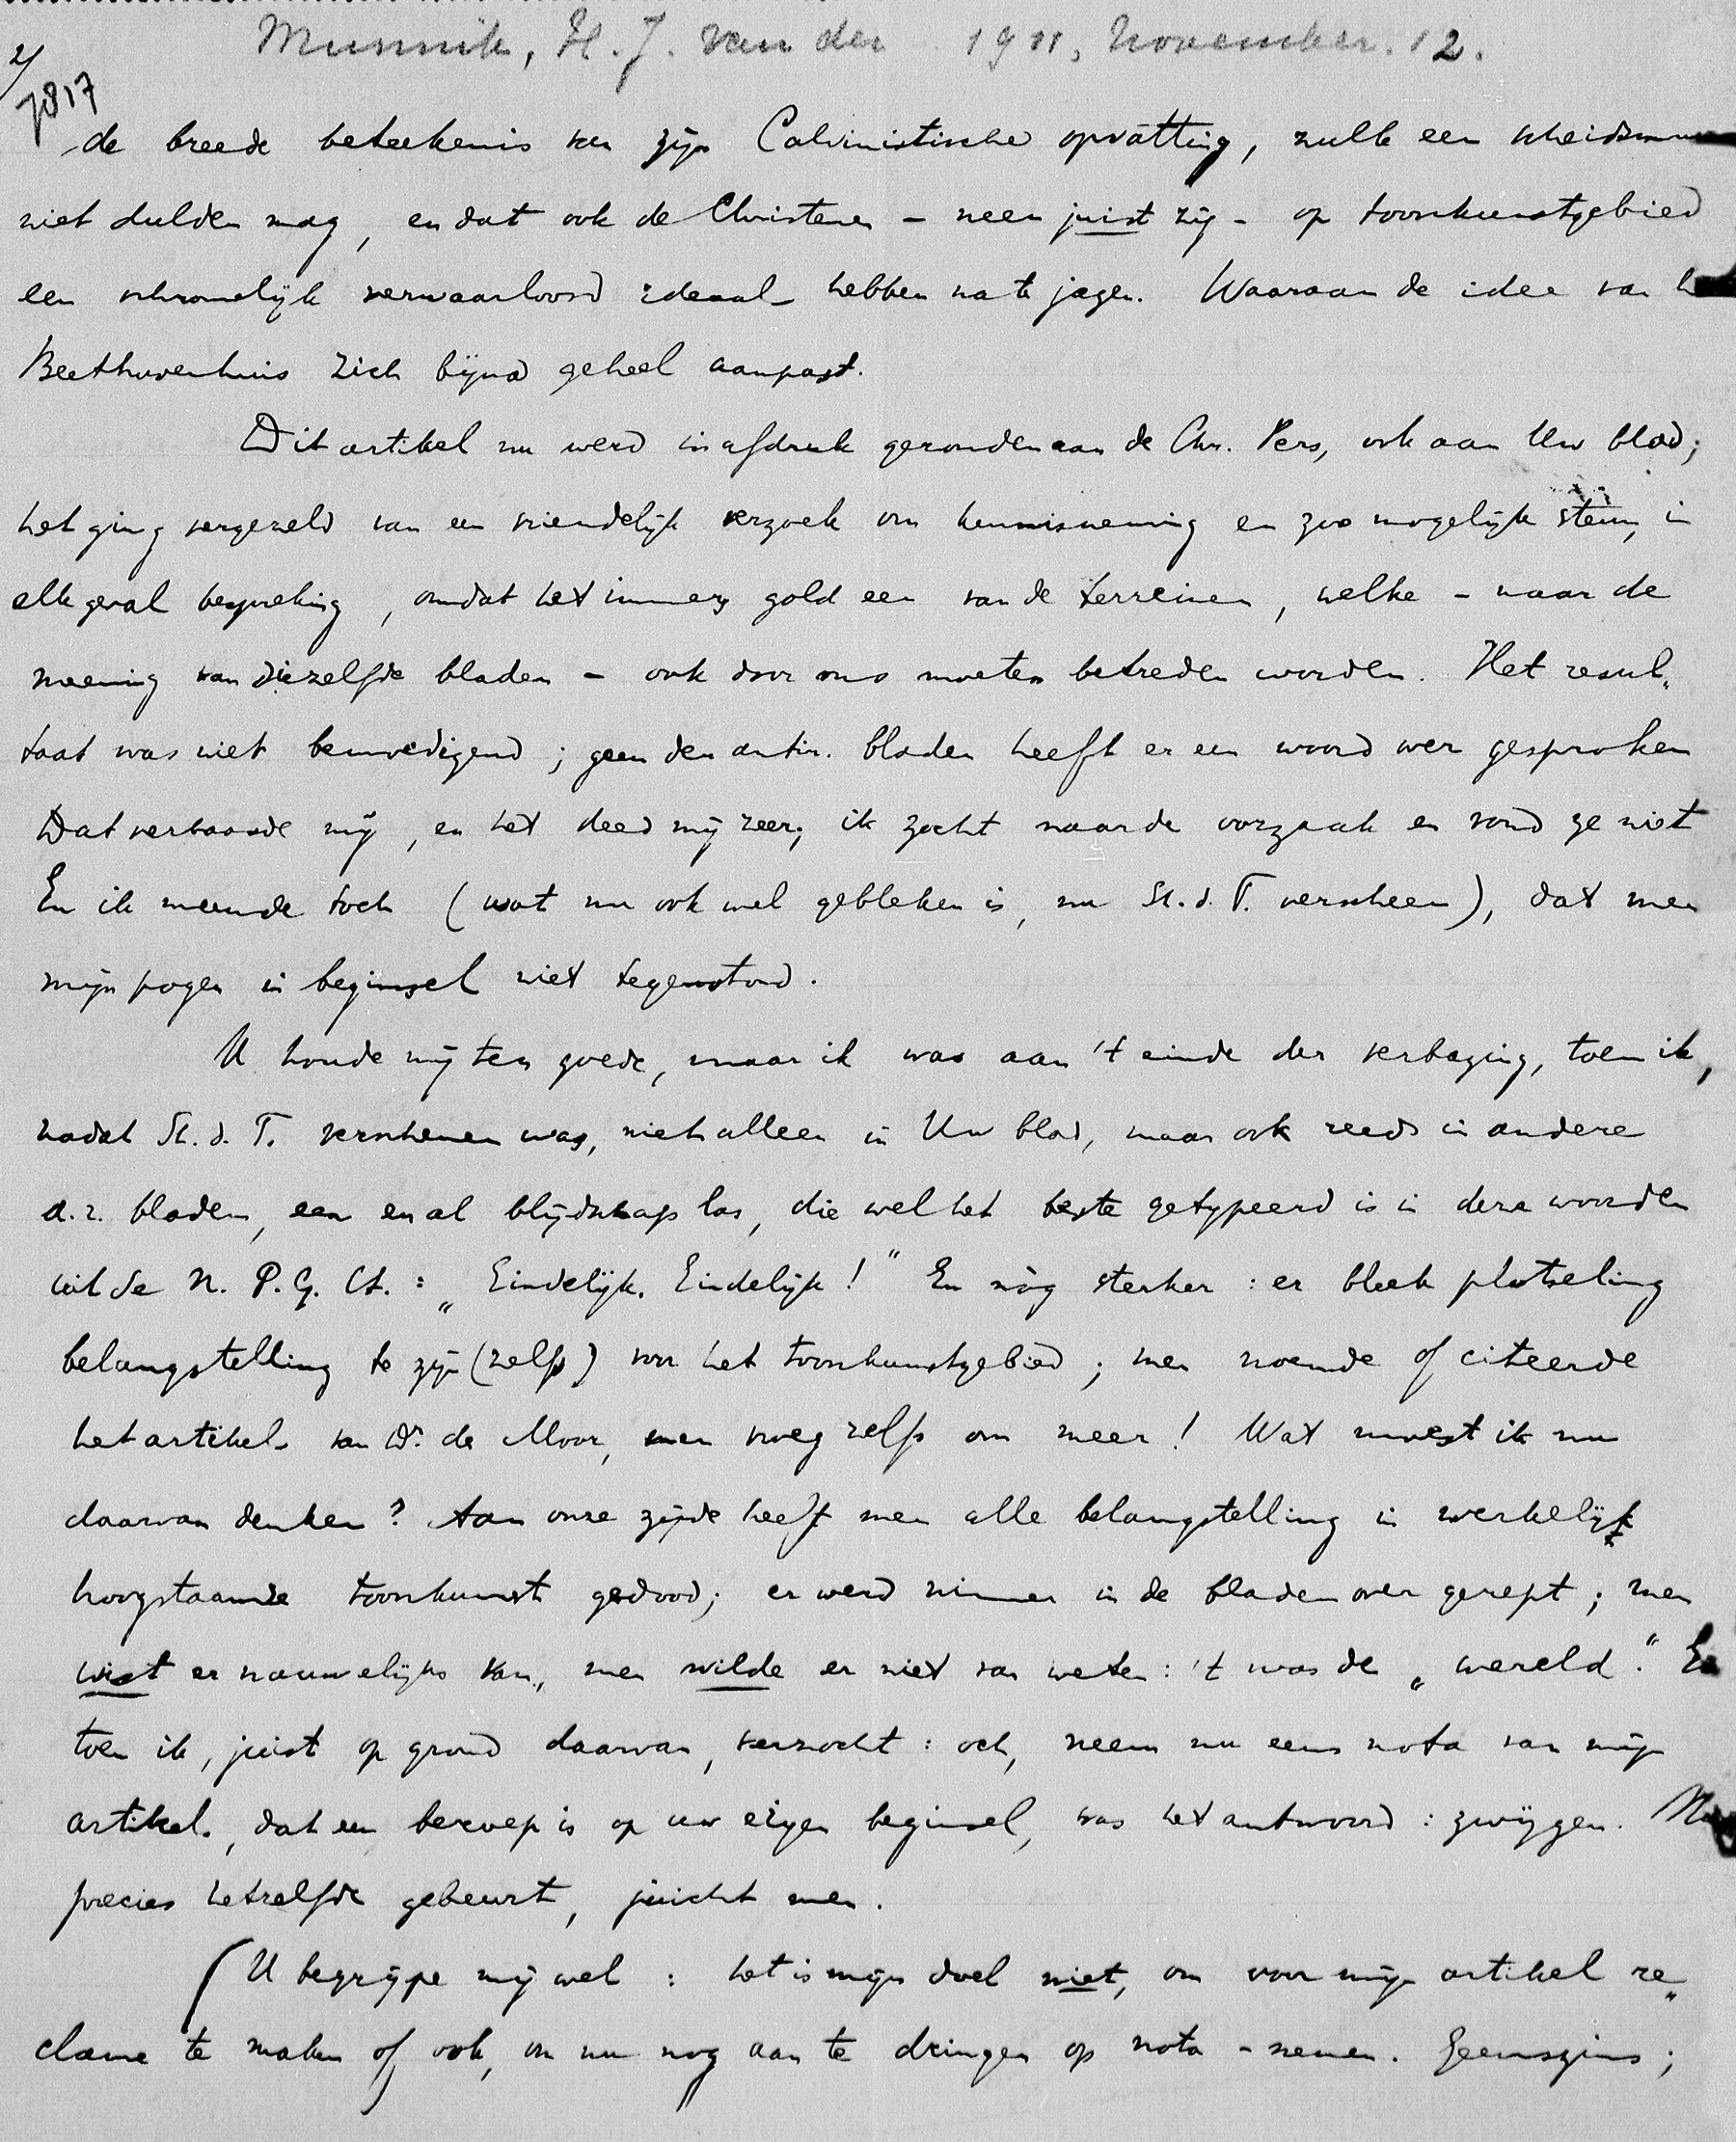 Munnik, H. J. van der 1911, November. 12.
2/
7817
de breede beteekenis van zijn Calvinistische opvatting, zulk een scheidsmuur
niet dulden mag, en dat ook de Christenen – neen juist zij – op toonkunstgebied
een schromelijk verwaarloosd ideaal hebben na te jagen. Waaraan de idee van
Beethovenhuis zich bijna geheel aanpast.
Dit artikel nu werd in afdruk gezonden aan de Chr. Pers, ook aan Uw blad;
het ging vergezeld van een vriendelijk verzoek om kennisneming en zoo mogelijk steun, in
elk geval bespreking, omdat het immers gold een van de terreinen, welke – naar de
meening van diezelfde bladen – ook door ons moeten betreden worden. Het resul„
taat was niet bemoedigend; geen der antir. bladen heeft er een woord over gesproken
Dat verbaasde mij, en het deed mij zeer; ik zocht naar de oorzaak en vond ze niet
En ik meende toch (wat nu ook wel gebleken is, nu St. d. T. verscheen), dat men
mijn pogen in beginsel niet tegenstond.
U houde mij ten goede, maar ik was aan 't einde der verbazing, toen ik,
nadat St. d. T. verschenen was, niet alleen in Uw blad, maar ook reeds in andere
a.r. bladen, een en al blijdschap las, die wel het beste getypeerd is in deze woorden
uit de N. P. G. Ct.: „Eindelijk. Eindelijk!" En nòg sterker: er bleek plotseling
belangstelling te zijn (zelfs) voor het toonkunstgebied; men noemde of citeerde
het artikel van Dr. de Moor, men vroeg zelfs om meer! Wat moest ik nu
daarvan denken? Aan onze zijde heeft men alle belangstelling in werkelijk
hoogstaande toonkunst gedood; er werd nimmer in de bladen over gerept; men
wist er nauwelijks van, men wilde er niet van weten: 't was de „wereld". En
toen ik, juist op grond daarvan, verzocht: och, neem nu eens nota van mijn
artikel, dat een beroep is op uw eigen beginsel, was het antwoord: zwijgen. Nu
precies hetzelfde gebeurt, juicht men.
(U begrijpe mij wel: het is mijn doel niet, om voor mijn artikel re„
clame te maken of ook, om nu nog aan te dringen op nota-nemen. Geenszins;